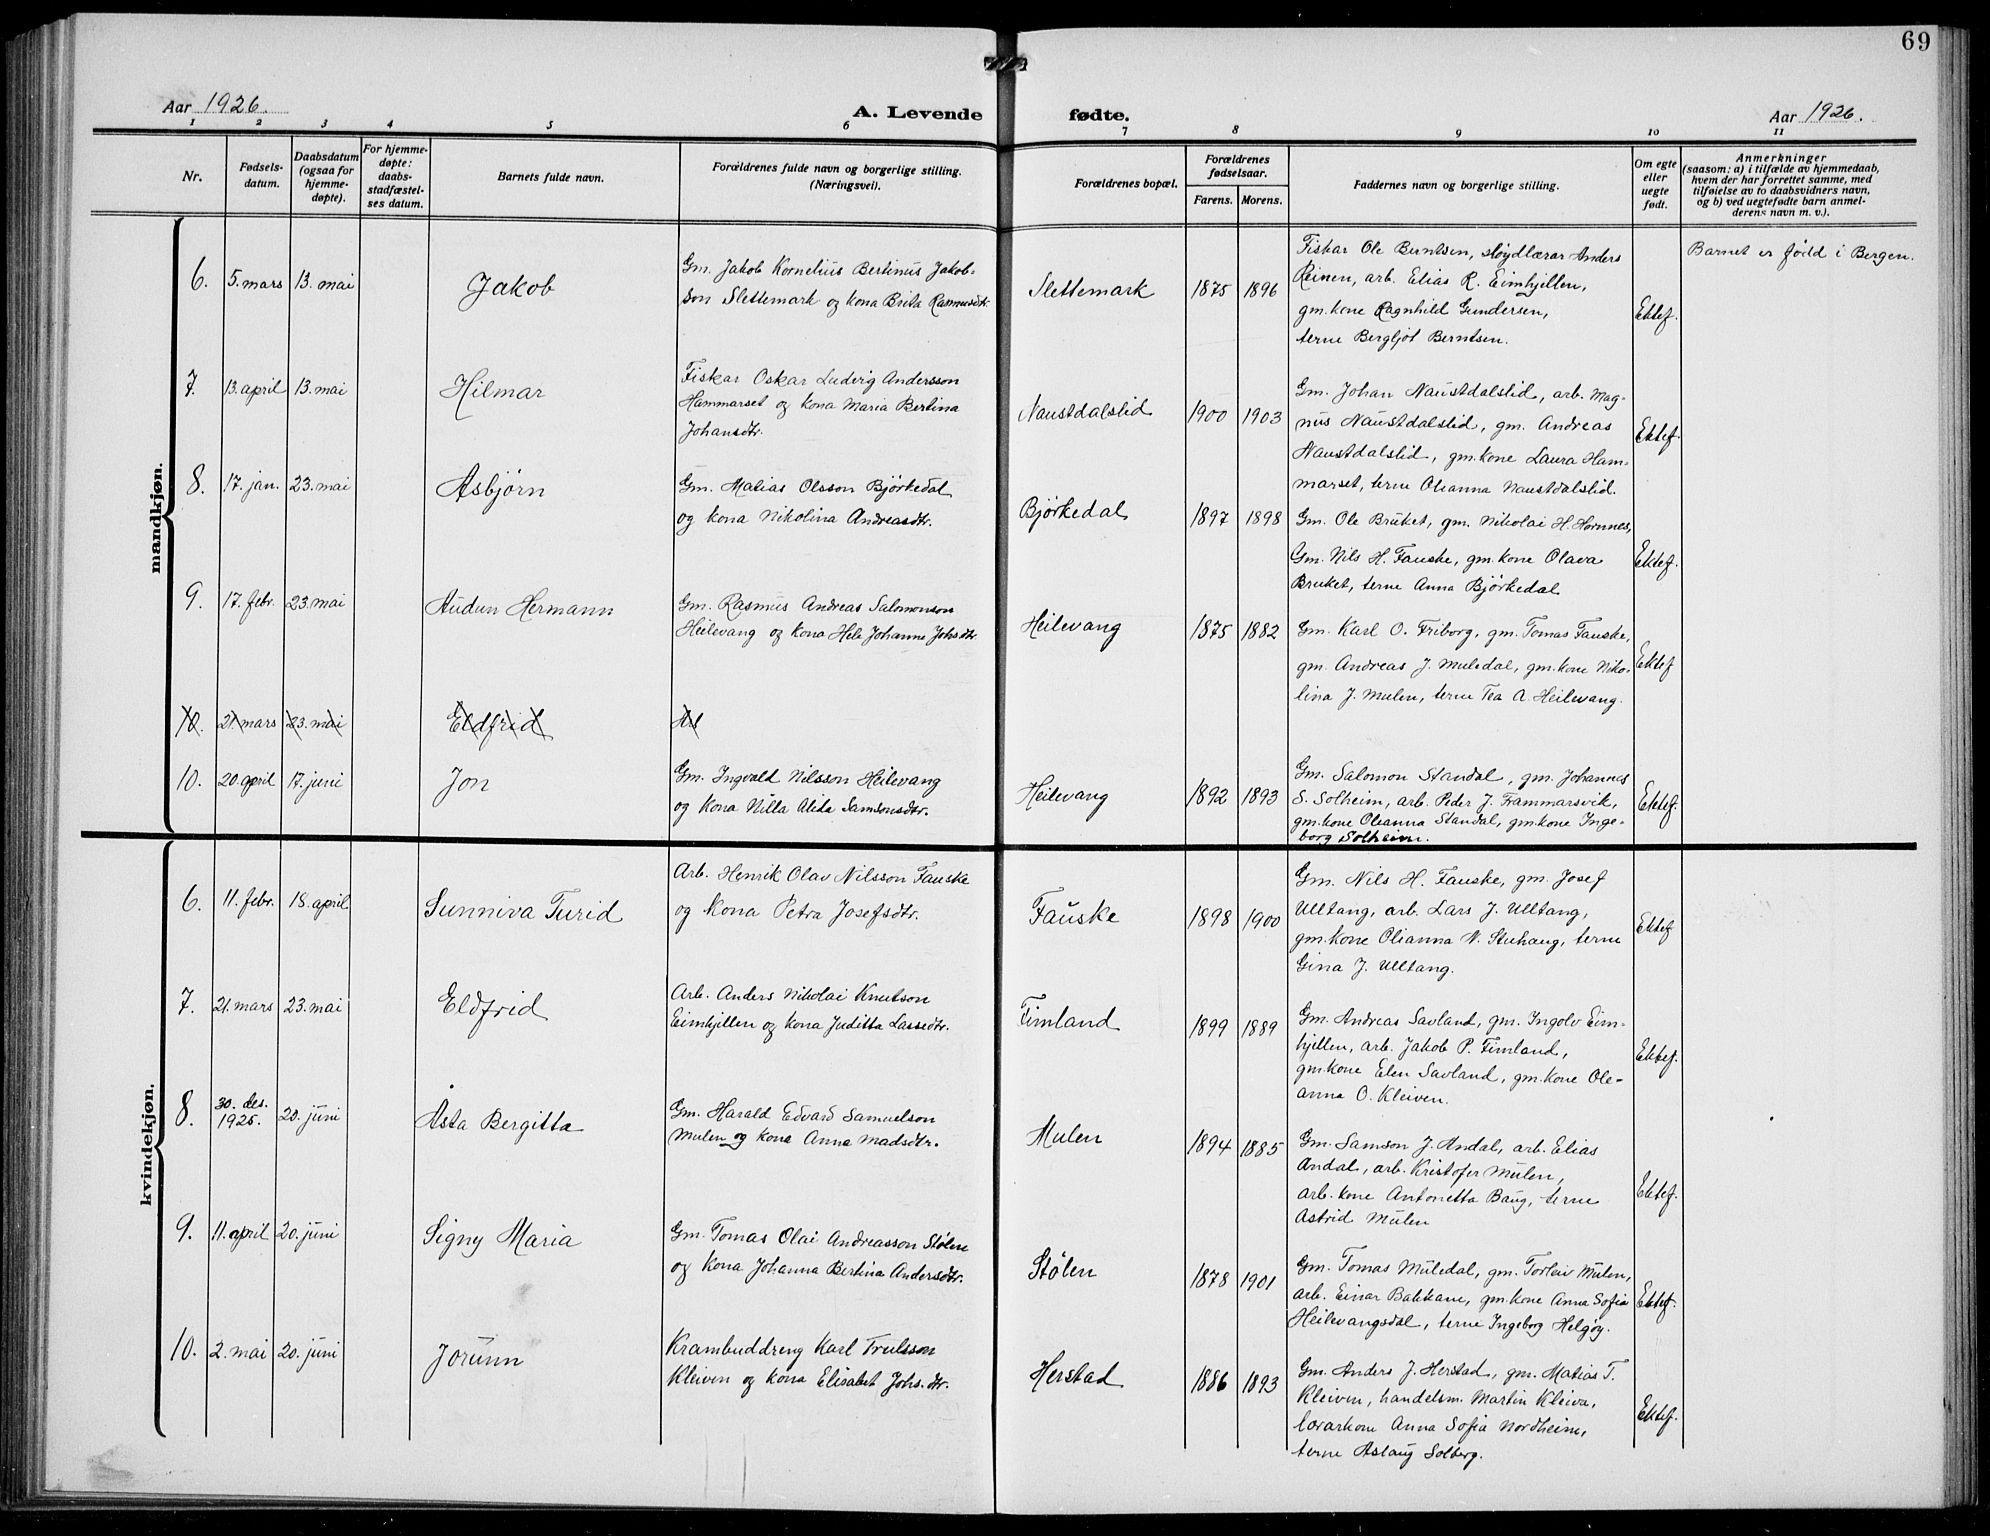 69
Aar 1926.
A. Levende
fødte.
Aar 1926.
1 2 3 4 5 6 7 8 9 10 11
Nr.
Fødsels-
datum.
Daabsdatum
(ogsaa for
hjemme-
døpte).
For hjemme-
døpte:
daabs-
stadfæstel-
ses datum.
Barnets fulde navn.
Forældrenes fulde navn og borgerlige stilling.
(Næringsvei).
Forældrenes bopæl.
Forældrenes
fødselsaar.
Farens. Morens.
Faddernes navn og borgerlige stilling.
Om egte
eller
uegte
født.
Anmerkninger
(saasom: a) i tilfælde av hjemmedaab,
hvem der har forrettet samme, med
tilføielse av to daabsvidners navn,
og b) ved uegtefødte barn anmel-
derens navn m. v.).
mandkjøn.
6. 5. mars 13. mai Jakob
Gm. Jakob Kornelius Bertinus Jakob-
son Slettemark og kona Brita Rasmusdtr.
Slettemark 1875 1896
Fiskar Ole Berntsen, sløydlærar Anders
Reinen, arb. Elias R. Eimhjellen,
gm. kone Ragnhild Gundersen,
terne Bergljot Berntsen.
Ektef.
Barnet er fødd i Bergen.
7. 13. april 13. mai Hilmar
Fiskar Oskar Ludvig Andersson
Hammarset og kona Maria Bertina
Johansdtr.
Naustdalslid 1900 1903
Gm. Johan Naustdalslid, arb. Mag-
nus Naustdalslid, gm. Andreas
Naustdalslid, gm. kone Laura Ham-
marset, terne Oleanna Naustdalslid.
Ektef.
8. 17. jan. 23. mai Asbjørn
Gm. Matias Olsson Bjørkedal
og kona Nikolina Andreasdtr.
Bjørkedal 1897 1898
Gm. Ole Bruket, gm. Nikolai H. Hornnes,
Gm. Nils H. Fauske, gm. kone Olava
Bruket, terne Anna Bjørkedal
Ektef.
9. 17. febr. 23. mai Audun Hermann
Gm. Rasmus Andreas Salomonson
Heilevang og kona Hele Johanne Johsdtr
Heilevang 1875 1882
Gm. Karl O. Friborg, gm. Tomas Fauske,
gm. Andreas J. Muledal, gm. kone Niko-
lina J. Mulen, terne Tea A. Heilevang.
Ektef
10. 21. mars 23. mai Eldfrid
10. 20. april 17. juni Jon
Gm. Ingvald Nilsson Heilevang
og kona Nilla Alida Samsonsdtr.
Heilevang 1892 1893
Gm. Salomon Standal, gm. Johannes
S. Solheim, arb. Peder J. Frammarsvik,
gm. kone Oleanna Standal, gm. kone Inge-
borg Solheim.
Ektef.
kvindekjøn.
6. 11. febr. 18. april Sunniva Turid
Arb. Henrik Olav Nilsson Fauske
og kona Petra Josefsdtr.
Fauske 1898 1900
Gm. Nils H. Fauske, gm. Josef
Ulltang, arb. Lars J. Ulltang,
gm. kone Olianna N. Stuhaug, terne
Gina J. Ulltang.
Ektef
7. 21. mars 23. mai Eldfrid
Arb. Anders Nikolai Knutson
Eimhjellen og kona Juditta Lassedtr.
Fimland 1899 1889
Gm. Andreas Savland, gm. Ingolv Eim-
hjellen, arb. Jakob P. Fimland,
gm. kone Elen Savland, gm. kone Ole-
anna O. Kleiven.
Ektef.
8. 30. des. 1925. 20. juni Åsta Bergitta
Gm. Harald Edvard Samuelson
Mulen og kona Anna Madsdtr.
Mulen 1894 1885
Gm. Samson J. Andal, arb. Elias
Andal, arb. Kristofer Mulen,
arb. kone Antonetta Baug, terne
Astrid Mulen
Ektef.
9. 11. april 20. juni Signy Maria
Gm. Tomas Olai Andreasson Stølen
og kona Johanna Bertina Andersdtr.
Stølen 1878 1901
Gm. Tomas Muledal, gm. Torleiv Mulen,
arb. Einar Bakkane, gm. kone Anna Sofia
Heilevangsdal, terne Ingeborg Helgøy.
Ektef.
10. 2. mai 20. juni Jorunn
Krambuddreng Karl Trulsson
Kleiven og kona Elisabet Johs. dtr.
Herstad 1886 1893
Gm. Anders J. Herstad, gm. Matias T.
Kleiven, handelsm. Martin Kleiva,
lærarkone Anna Sofia Nordheim,
terne Aslaug Solberg.
Ektef.